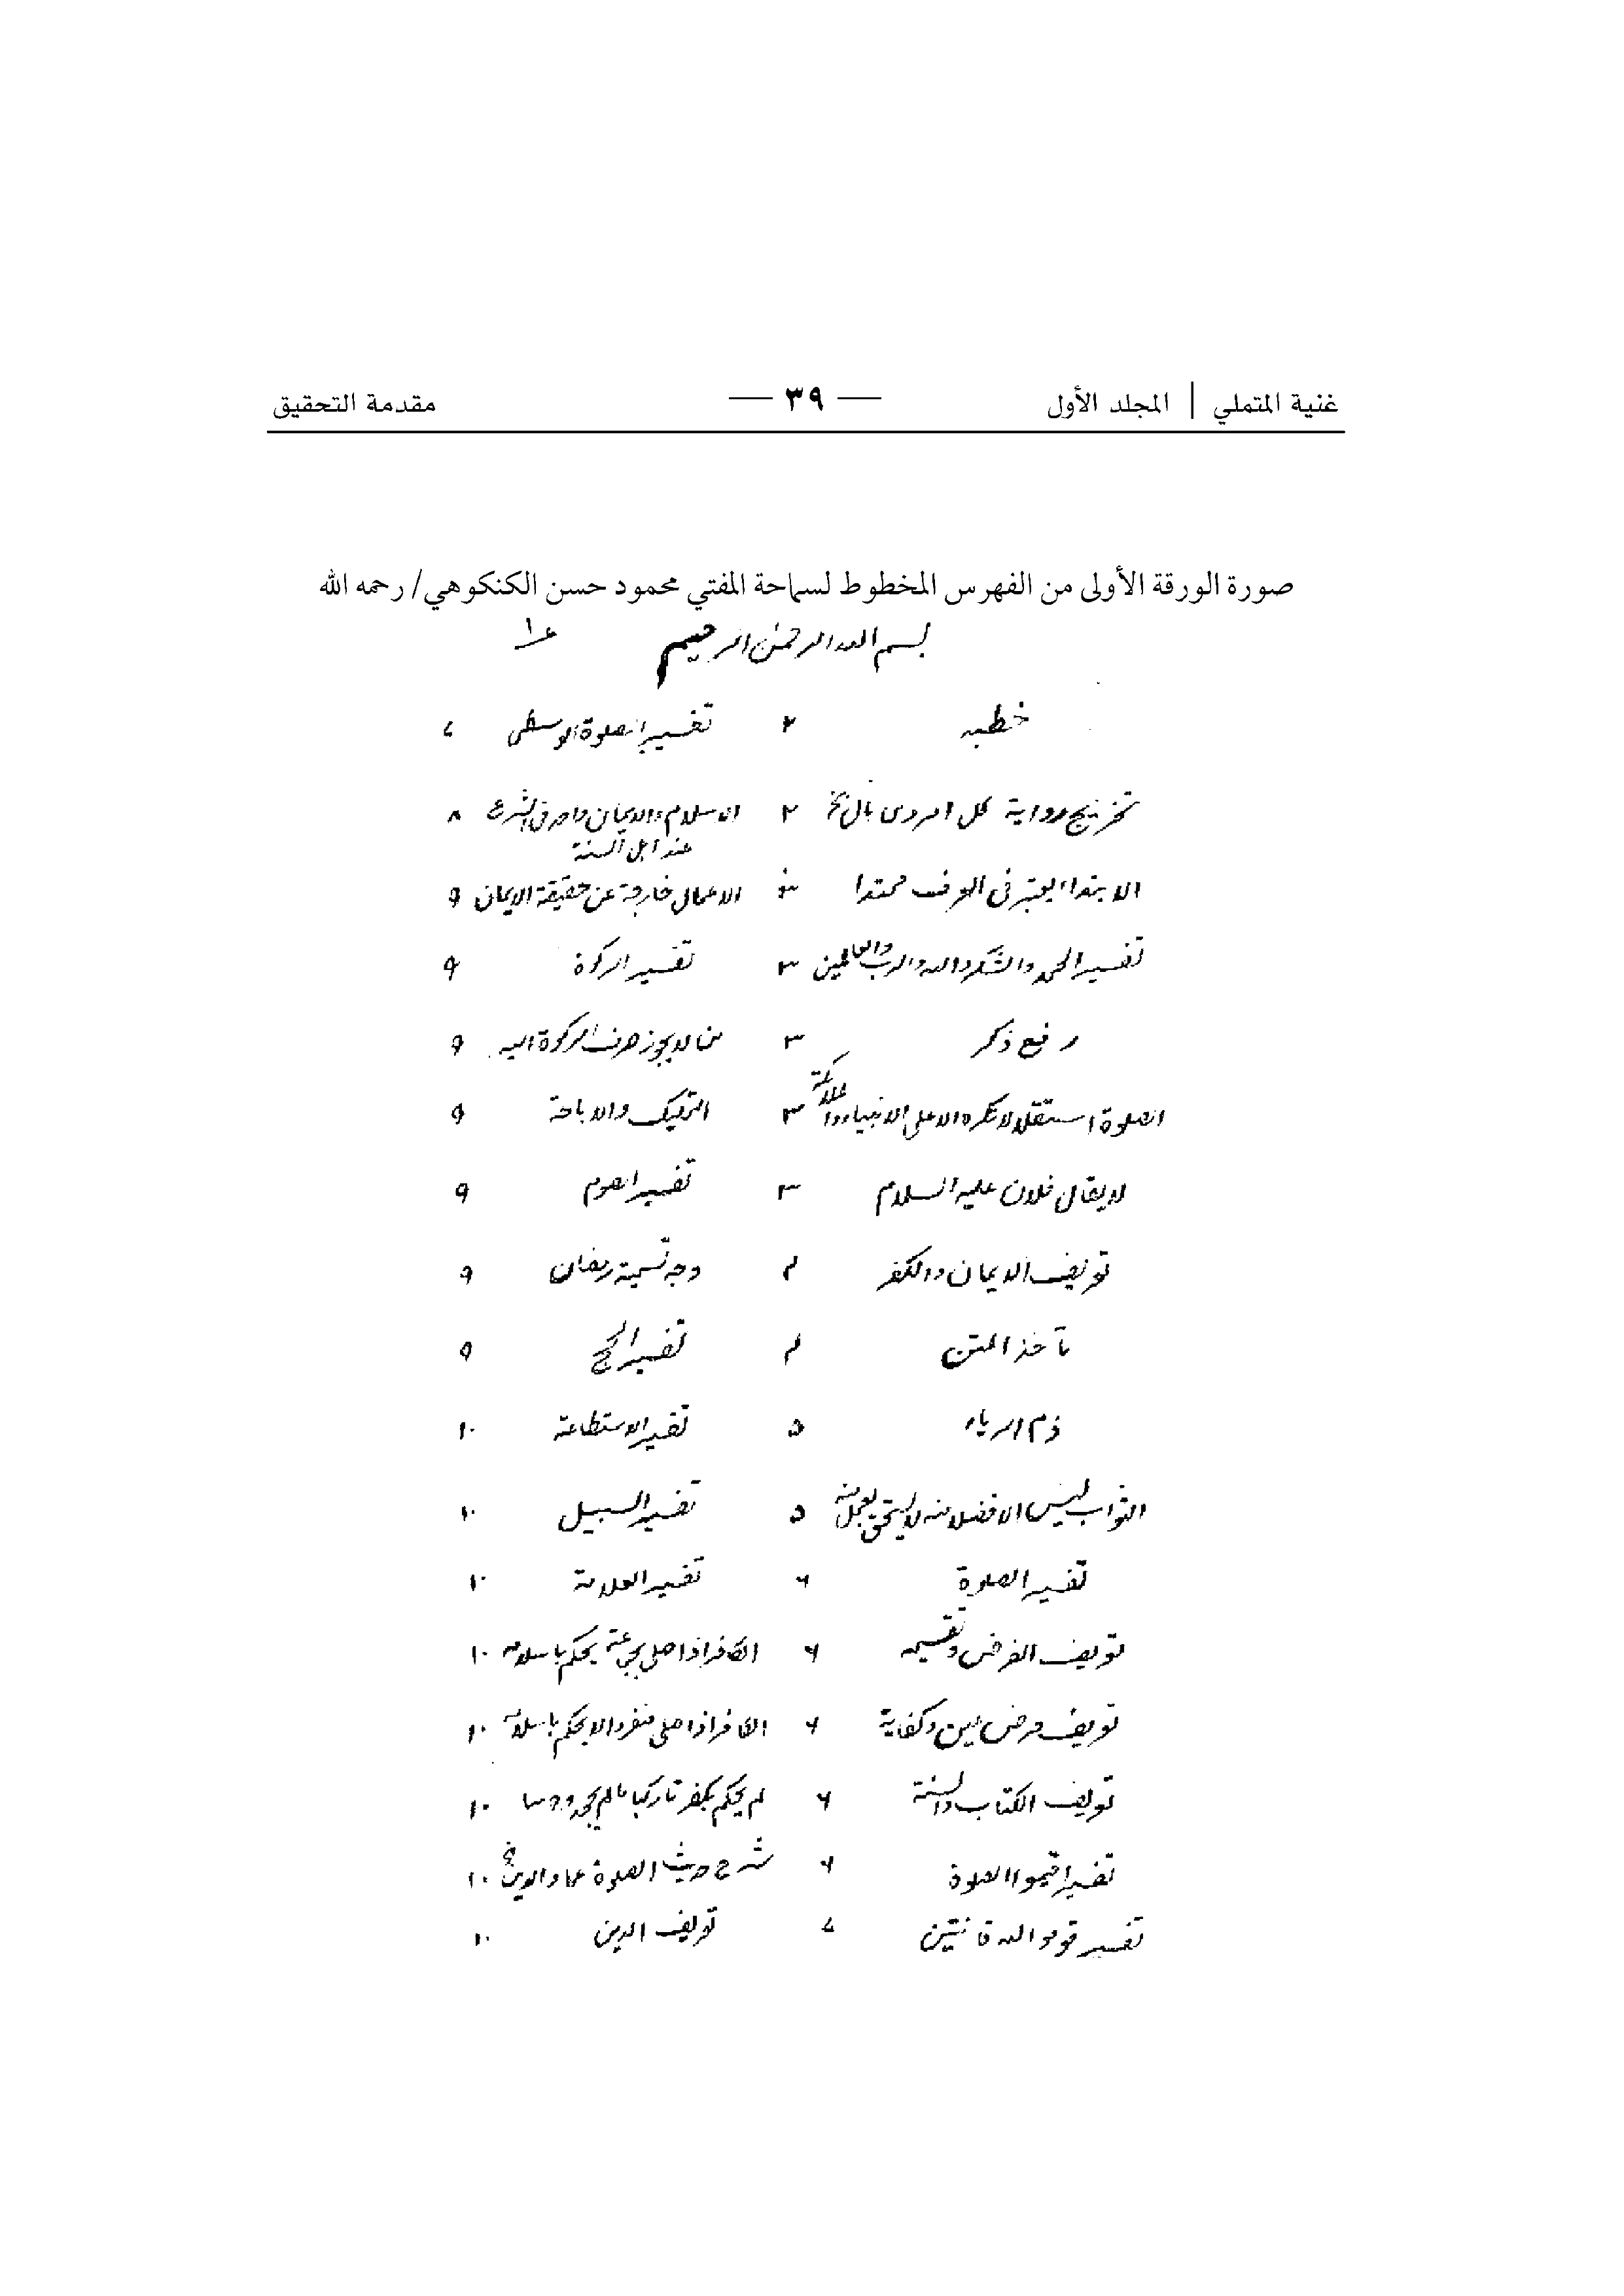 غنية المتملي | المجلد الأول — ٣٩ — مقدمة التحقيق
صورة الورقة الأولى من الفهرس المخطوط لسماحة المفتي محمود حسن الكنكوهي/ رحمه الله
بسم الله الرحمن الرحيم
خطبه ٢ تفسير الصلوة الوسطى ٧
تخريج رواية كل امر ذى بال الخ ٢ الاسلام والايمان واحد فى الشرع ٨
عند اهل السنة
الابتداء يعتبر فى العرف ممتدا ٣ الاعمال خارجة عن حقيقة الايمان ٩
تفسير الحمد والشكر والله والرب والعالمين ٣ تفسير الزكوة ٩
رفع ذكر ٣ من لا يجوز صرف الزكوة اليه ٩
الصلوة استقلالا تكره الا على الانبياء والملائكة ٣ التمليك والاباحة ٩
لا يقال فلان عليه السلام ٣ تفسير الصوم ٩
تعريف الايمان والكفر ٤ وجه تسمية رمضان ٩
مآخذ المتن ٤ تفسير الحج ٩
ذم الرياء ٥ تفسير الاستطاعة ١٠
الثواب ليس الا فضلا منه لا يستحق بعمل منه ٥ تفسير السبيل ١٠
تفسير الصلوة ٦ تفسير العلامة ١٠
تعريف الفرض وتقسيمه ٦ الكافر اذا صلى بجماعة يحكم باسلامه ١٠
تعريف فرض عين وكفاية ٦ الكافر اذا صلى منفردا لا يحكم باسلامه ١٠
تعريف الكتاب والسنة ٦ لم يحكم بكفر تاركها ما لم يجحد وجوبها ١٠
تفسير اقيموا الصلوة ٦ شرح حديث الصلوة عماد الدين الخ ١٠
تفسير قوموا لله قانتين ٧ تعريف الدين ١٠